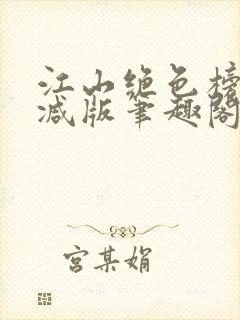 江山绝色榜
减版笔趣阁
宫某娟